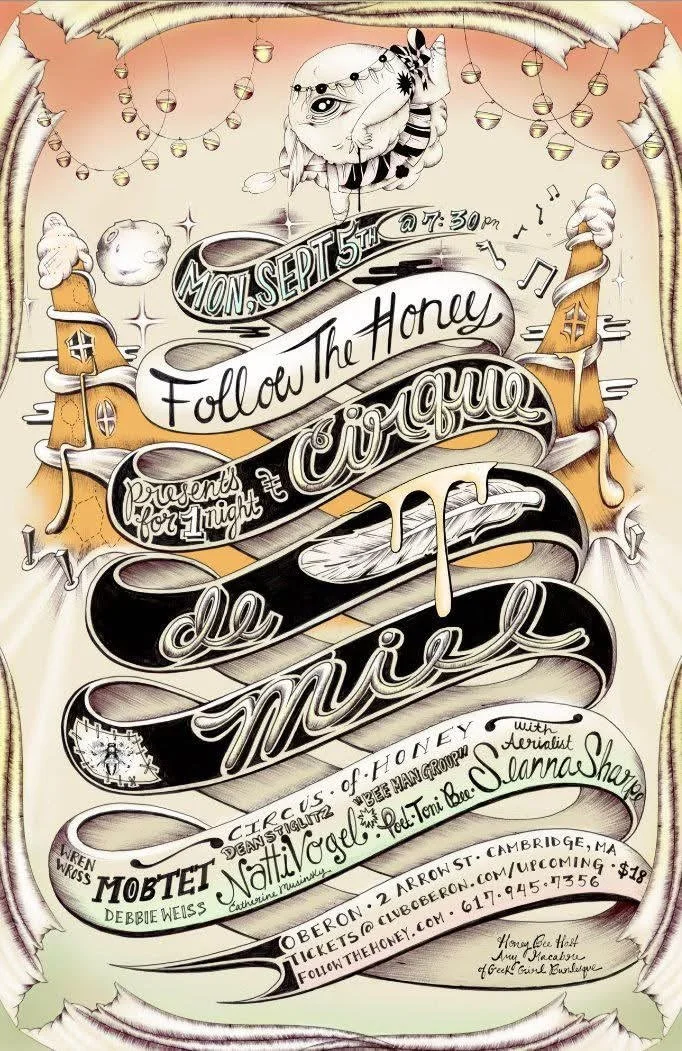 MON, SEPT 5TH @ 7:30PM
Follow The Honey
presents for 1 night
Cirque
de
Miel
CIRCUS · OF · HONEY
with Aerialist
Seanna Sharpe
WREN WROSS
MOBTET
DEBBIE WEISS
DEAN STIGLITZ
Natti Vogel
Catherine Musinsky
"BEE MAN GROUP"
Poet · Toni Bee ·
OBERON · 2 ARROW ST · CAMBRIDGE, MA
TICKETS @ CLUBOBERON.COM/UPCOMING · $18
FOLLOWTHEHONEY.COM · 617·945·7356
Honey Bee Host
Amy Macabre
of Geek Girl Burlesque